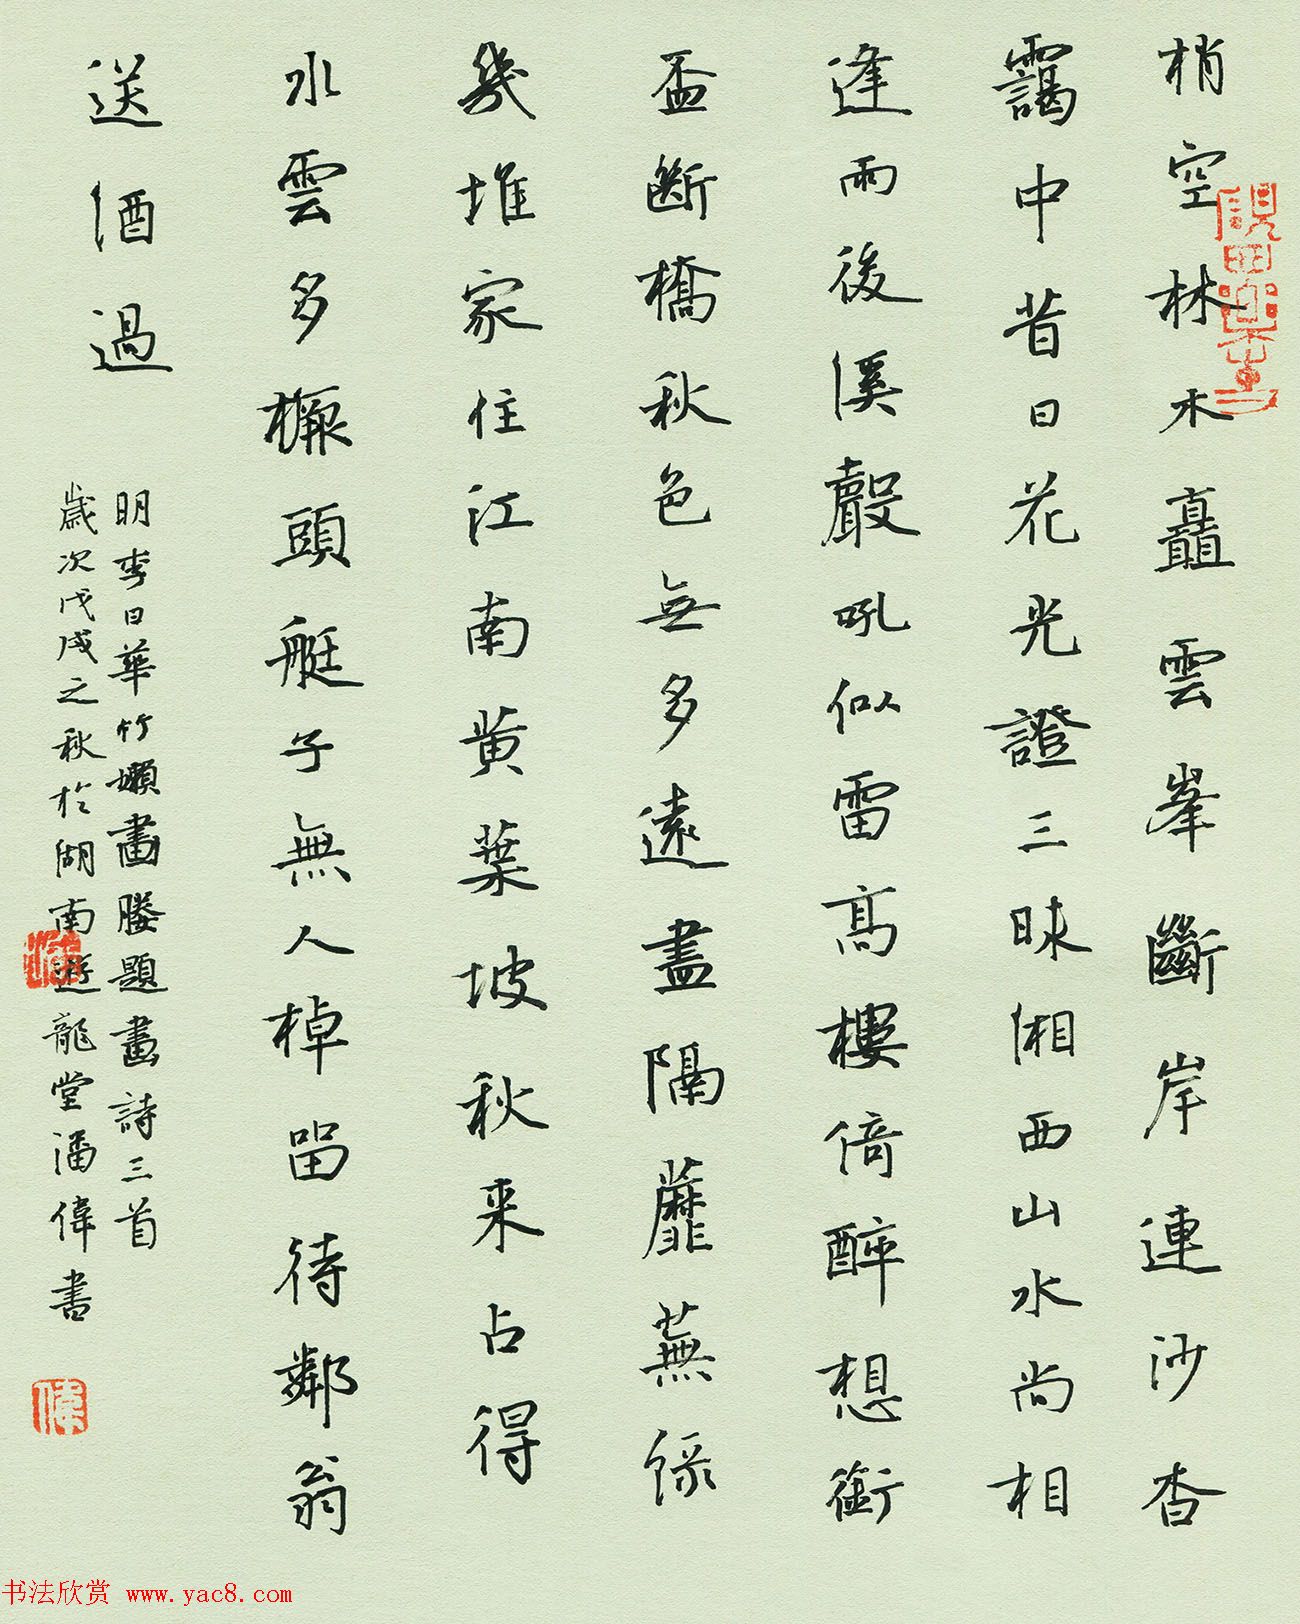 梢空林木矗雲峯斷岸連沙杳
靄中昔日花光證三昧湘西山水尚相
逢雨後溪聲吼似雷高樓倚醉想銜
盃斷橋秋色無多遠盡隔蘼蕪緑
幾堆家住江南黄葉坡秋来占得
水雲多橛頭艇子無人棹留待鄰翁
送酒過
明李日華竹嬾畫媵題畫詩三首
歲次戊戌之秋於湖南遊龍堂潘偉書
偉
书法欣赏 www.yac8.com